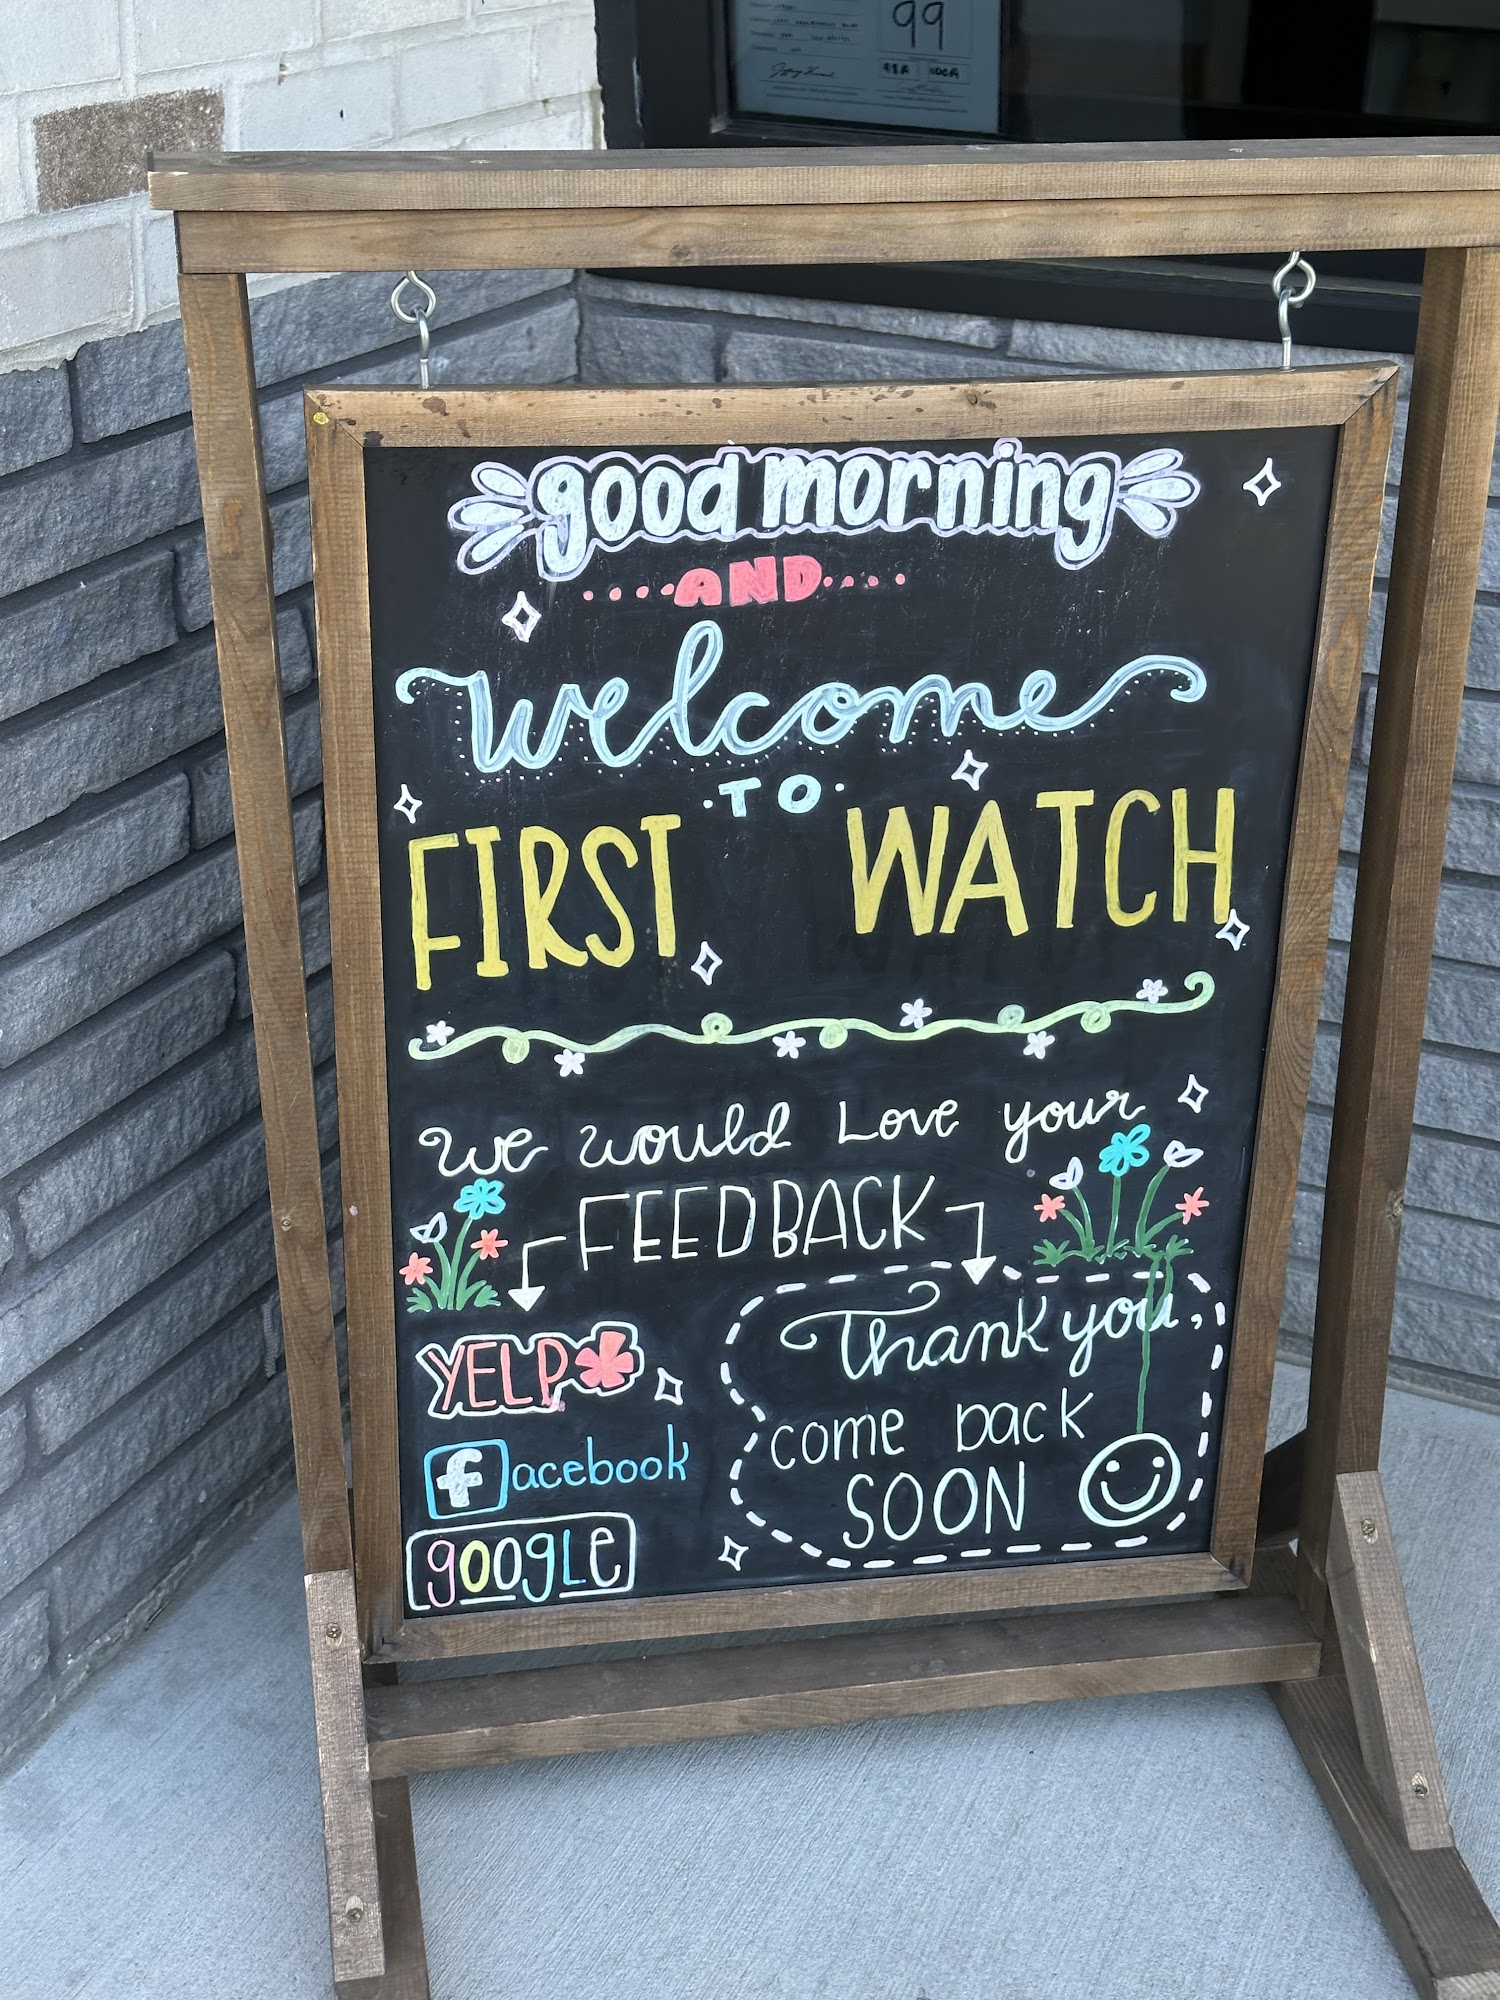 99
good morning
AND
welcome
TO
FIRST WATCH
We would Love your
FEEDBACK
YELP
facebook
google
Thank you,
come back
SOON